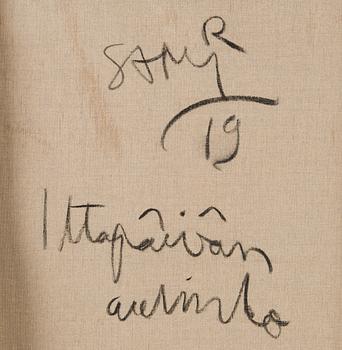 SAMY R
19
Iltapäivän
aurinko